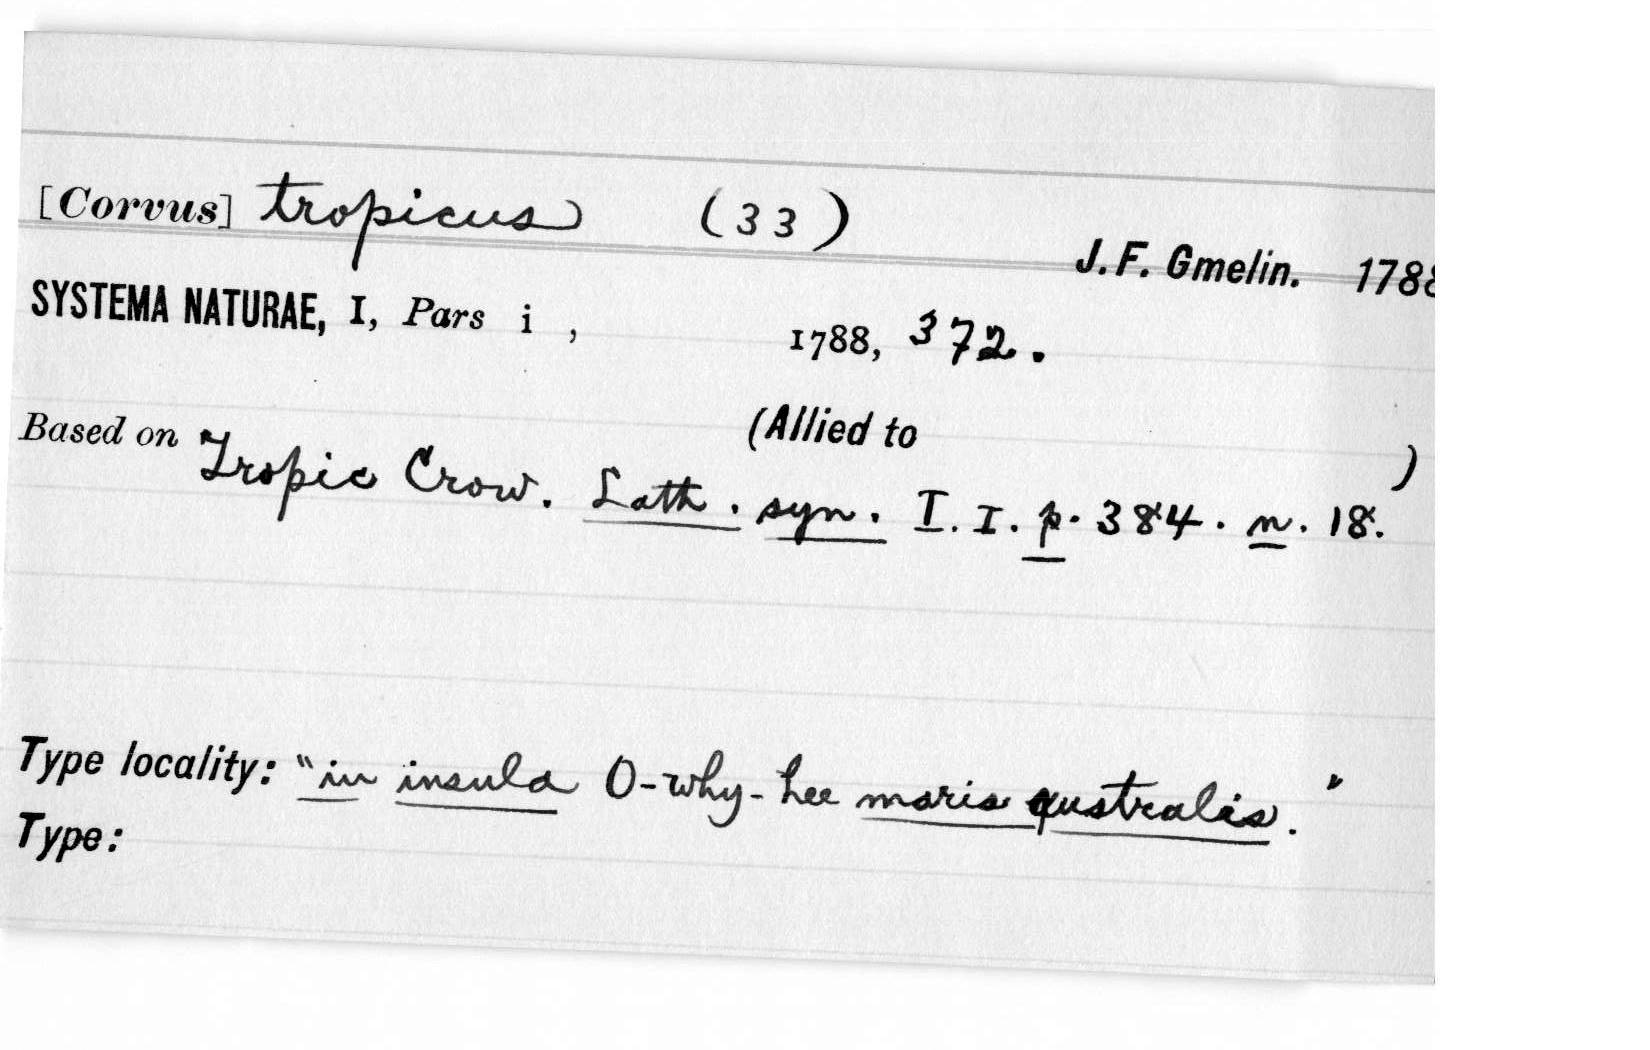 [Corvus] tropicus (33)
J. F. Gmelin. 1788
SYSTEMA NATURAE, I, Pars i , 1788, 372.
Based on (Allied to )
Tropic Crow. Lath. syn. I. I. p. 384. n. 18.
Type locality: "in insula O-why-hee maris australis."
Type: